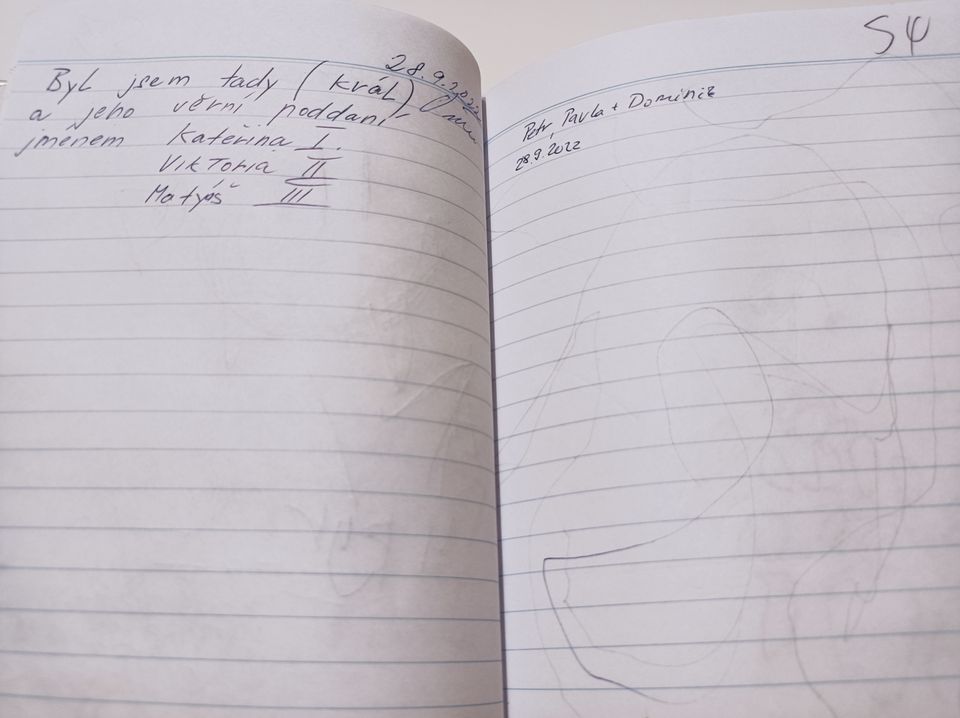 28.9.2022
Byl jsem tady (král)
a jeho věrní poddaní
jménem Kateřina I.
Viktoria II
Matyáš III
54
Petr, Pavla + Dominik
28.9.2022